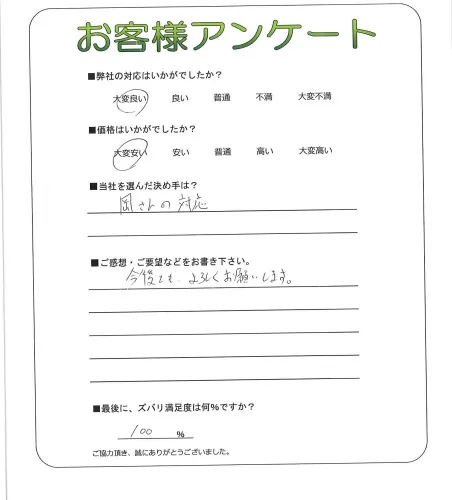 お客様アンケート
■弊社の対応はいかがでしたか？
大変良い 良い 普通 不満 大変不満
■価格はいかがでしたか？
大変安い 安い 普通 高い 大変高い
■当社を選んだ決め手は？
岡さんの対応
■ご感想・ご要望などをお書き下さい。
今後とも、よろしくお願いします。
■最後に、ズバリ満足度は何%ですか？
100 %
ご協力頂き、誠にありがとうございました。